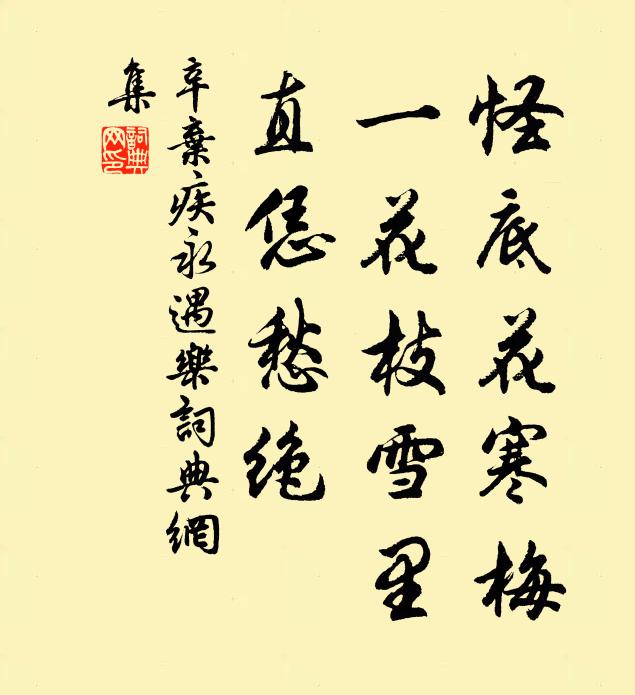 怪底花寒梅
一花枝雪里
直恁愁绝
辛棄疾永遇樂詞典網
集
詞典網印